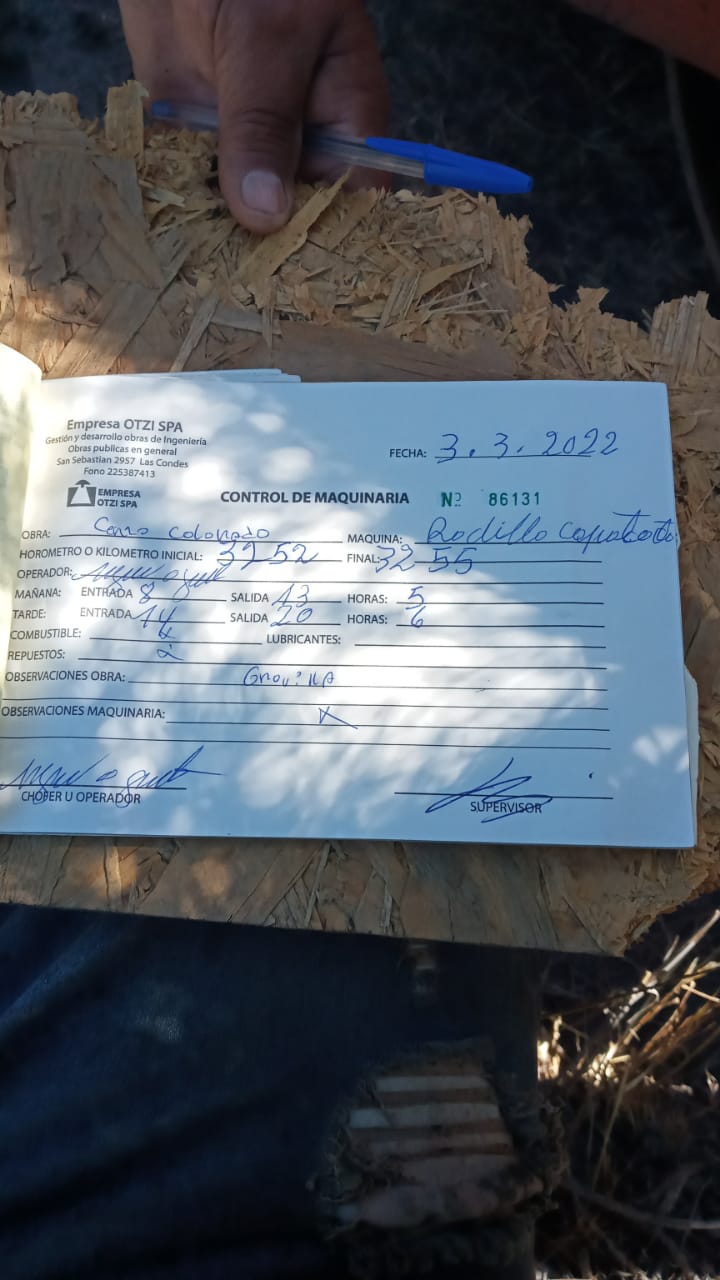 Empresa OTZI SPA
Gestión y desarrollo obras de Ingeniería
Obras publicas en general
San Sebastian 2957 Las Condes
Fono 225387413
FECHA: 3.3.2022
EMPRESA
OTZI SPA
CONTROL DE MAQUINARIA Nº 86131
OBRA: Cerro Colorado MAQUINA: Rodillo
HOROMETRO O KILOMETRO INICIAL: 3252 FINAL: 3255
OPERADOR:
MAÑANA: ENTRADA 8 SALIDA 13 HORAS: 5
TARDE: ENTRADA 14 SALIDA 20 HORAS: 6
COMBUSTIBLE: LUBRICANTES:
REPUESTOS:
OBSERVACIONES OBRA: Gravilla
OBSERVACIONES MAQUINARIA: X
CHOFER U OPERADOR SUPERVISOR